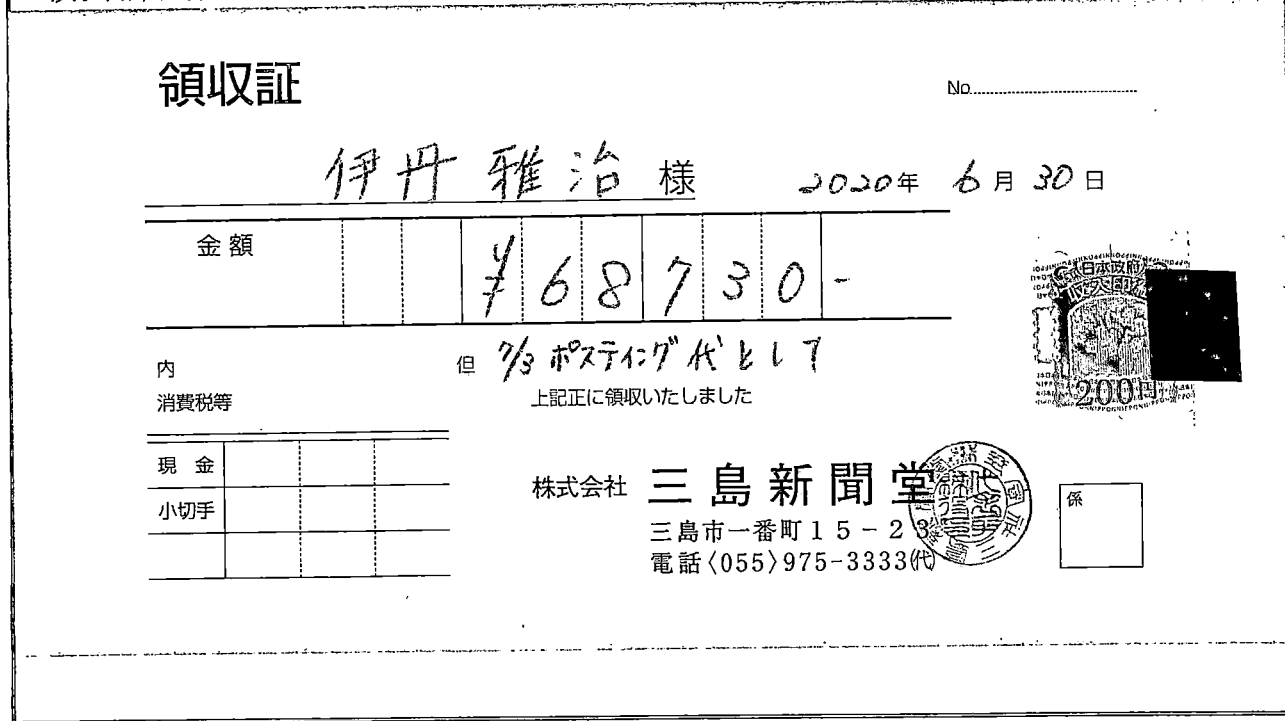 領収証
No.
伊丹 雅治 様
2020年 6月30日
金額 ¥68730-
内
消費税等
但 7/3 ポスティング代として
上記正に領収いたしました
日本政府
収入印紙
200円
現金
小切手
株式会社 三島新聞堂
三島市一番町15-23
電話〈055〉975-3333(代)
係